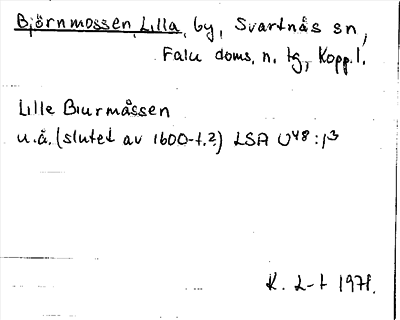 Björnmossen, Lilla, by, Svartnäs sn,
Falu doms. n. tg, Kopp. l.
Lille Biurmåssen
u.å. (slutet av 1600-t.?) LSA U48:13
K. L-t 1971.